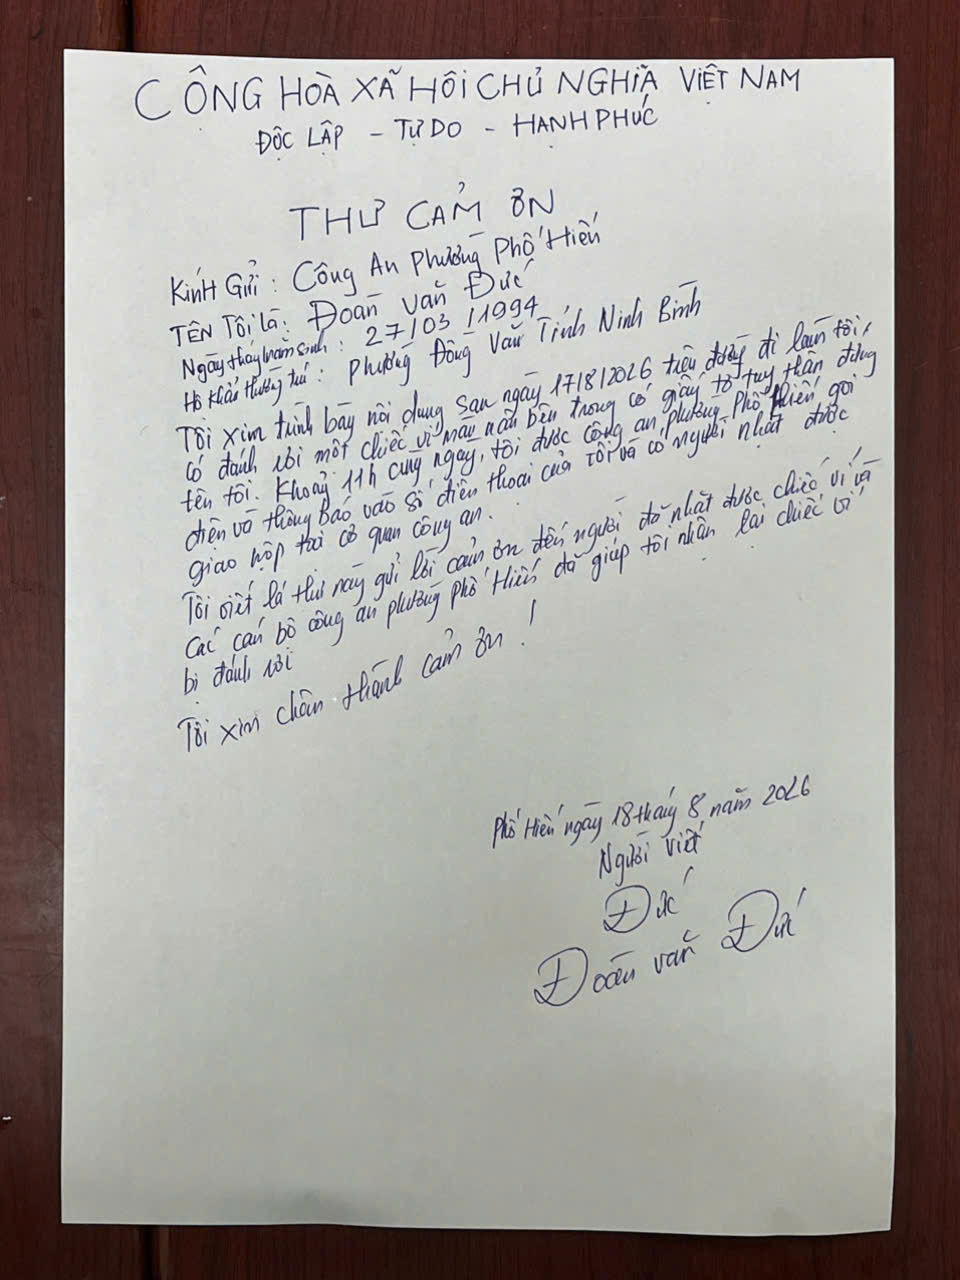 CÔNG HÒA XÃ HÔI CHỦ NGHĨA VIỆT NAM
ĐỘC LẬP - TỰ DO - HẠNH PHÚC
THƯ CẢM ƠN
Kính Gửi: Công An Phường Phố Hiến
TÊN Tôi là: Đoàn Văn Đức
Ngày tháng năm sinh: 27/03/1994
Hộ khẩu thường trú: Phường Đông Văn Tỉnh Ninh Bình
Tôi xin trình bày nôi dung sau ngày 17/8/2026 trên đường đi làm tôi,
có đánh rơi một chiếc ví màu nâu bên trong có giấy tờ tuy thân đứng
tên tôi. Khoảng 11h cùng ngày, tôi được công an phường Phố Hiến gọi
điện và thông báo vào số điện thoại của tôi và có người nhặt được
giao nộp tại cơ quan công an.
Tôi viết lá thư này gửi lời cảm ơn đến người đã nhặt được chiếc ví và
các cán bộ công an phường Phố Hiến đã giúp tôi nhận lại chiếc ví
bị đánh rơi
Tôi xin chân thành cảm ơn!
Phố Hiến ngày 18 tháng 8 năm 2026
Người viết
Đức
Đoàn văn Đức